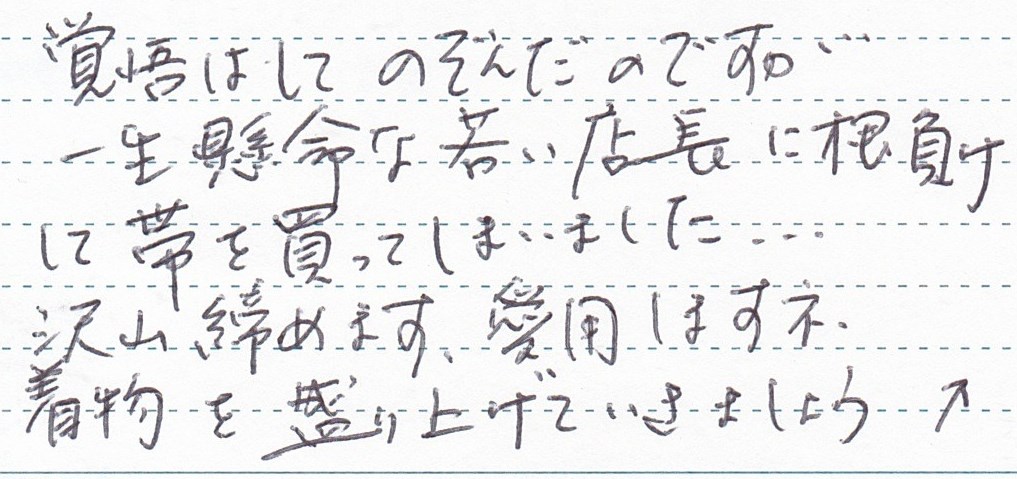 覚悟はして のぞんだのですが…
一生懸命な若い店長に根負け
して帯を買ってしまいました...
沢山締めます、愛用しますネ.
着物を盛り上げていきましょう ↗